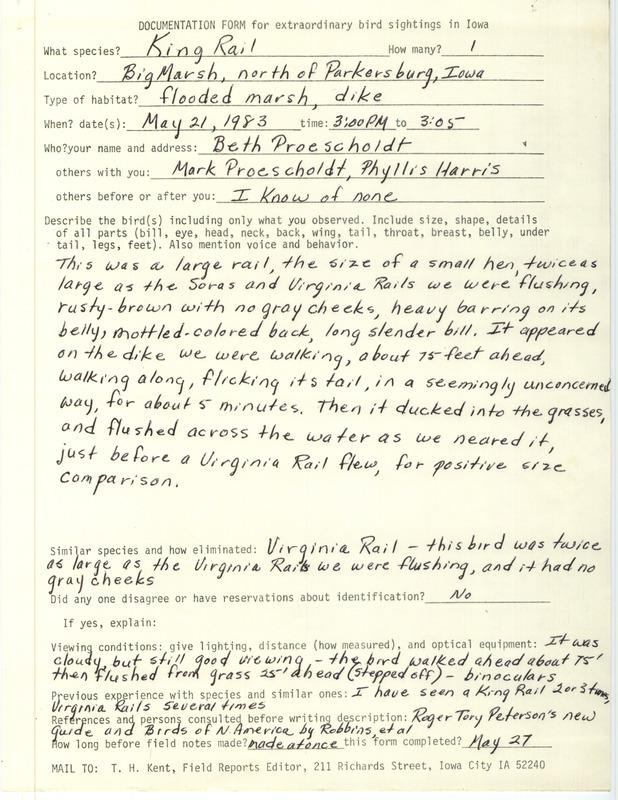 DOCUMENTATION FORM for extraordinary bird sightings in Iowa
What species? King Rail How many? 1
Location? Big Marsh, north of Parkersburg, Iowa
Type of habitat? flooded marsh, dike
When? date(s): May 21, 1983 time: 3:00 PM to 3:05
Who? your name and address: Beth Proescholdt
others with you: Mark Proescholdt, Phyllis Harris
others before or after you: I know of none
Describe the bird(s) including only what you observed. Include size, shape, details
of all parts (bill, eye, head, neck, back, wing, tail, throat, breast, belly, under
tail, legs, feet). Also mention voice and behavior.
This was a large rail, the size of a small hen, twice as
large as the Soras and Virginia Rails we were flushing,
rusty-brown with no gray cheeks, heavy barring on its
belly, mottled-colored back, long slender bill. It appeared
on the dike we were walking, about 75 feet ahead,
walking along, flicking its tail, in a seemingly unconcerned
way, for about 5 minutes. Then it ducked into the grasses,
and flushed across the water as we neared it,
just before a Virginia Rail flew, for positive size
comparison.
Similar species and how eliminated: Virginia Rail - this bird was twice
as large as the Virginia Rails we were flushing, and it had no
gray cheeks
Did any one disagree or have reservations about identification? No
If yes, explain:
Viewing conditions: give lighting, distance (how measured), and optical equipment: It was
cloudy, but still good viewing, - the bird walked ahead about 75'
then flushed from grass 25' ahead (stepped off) - binoculars
Previous experience with species and similar ones: I have seen a King Rail 2 or 3 times,
Virginia Rails several times
References and persons consulted before writing description: Roger Tory Peterson's new
guide and Birds of N America by Robbins, et al
How long before field notes made? made at once this form completed? May 27
MAIL TO: T. H. Kent, Field Reports Editor, 211 Richards Street, Iowa City IA 52240